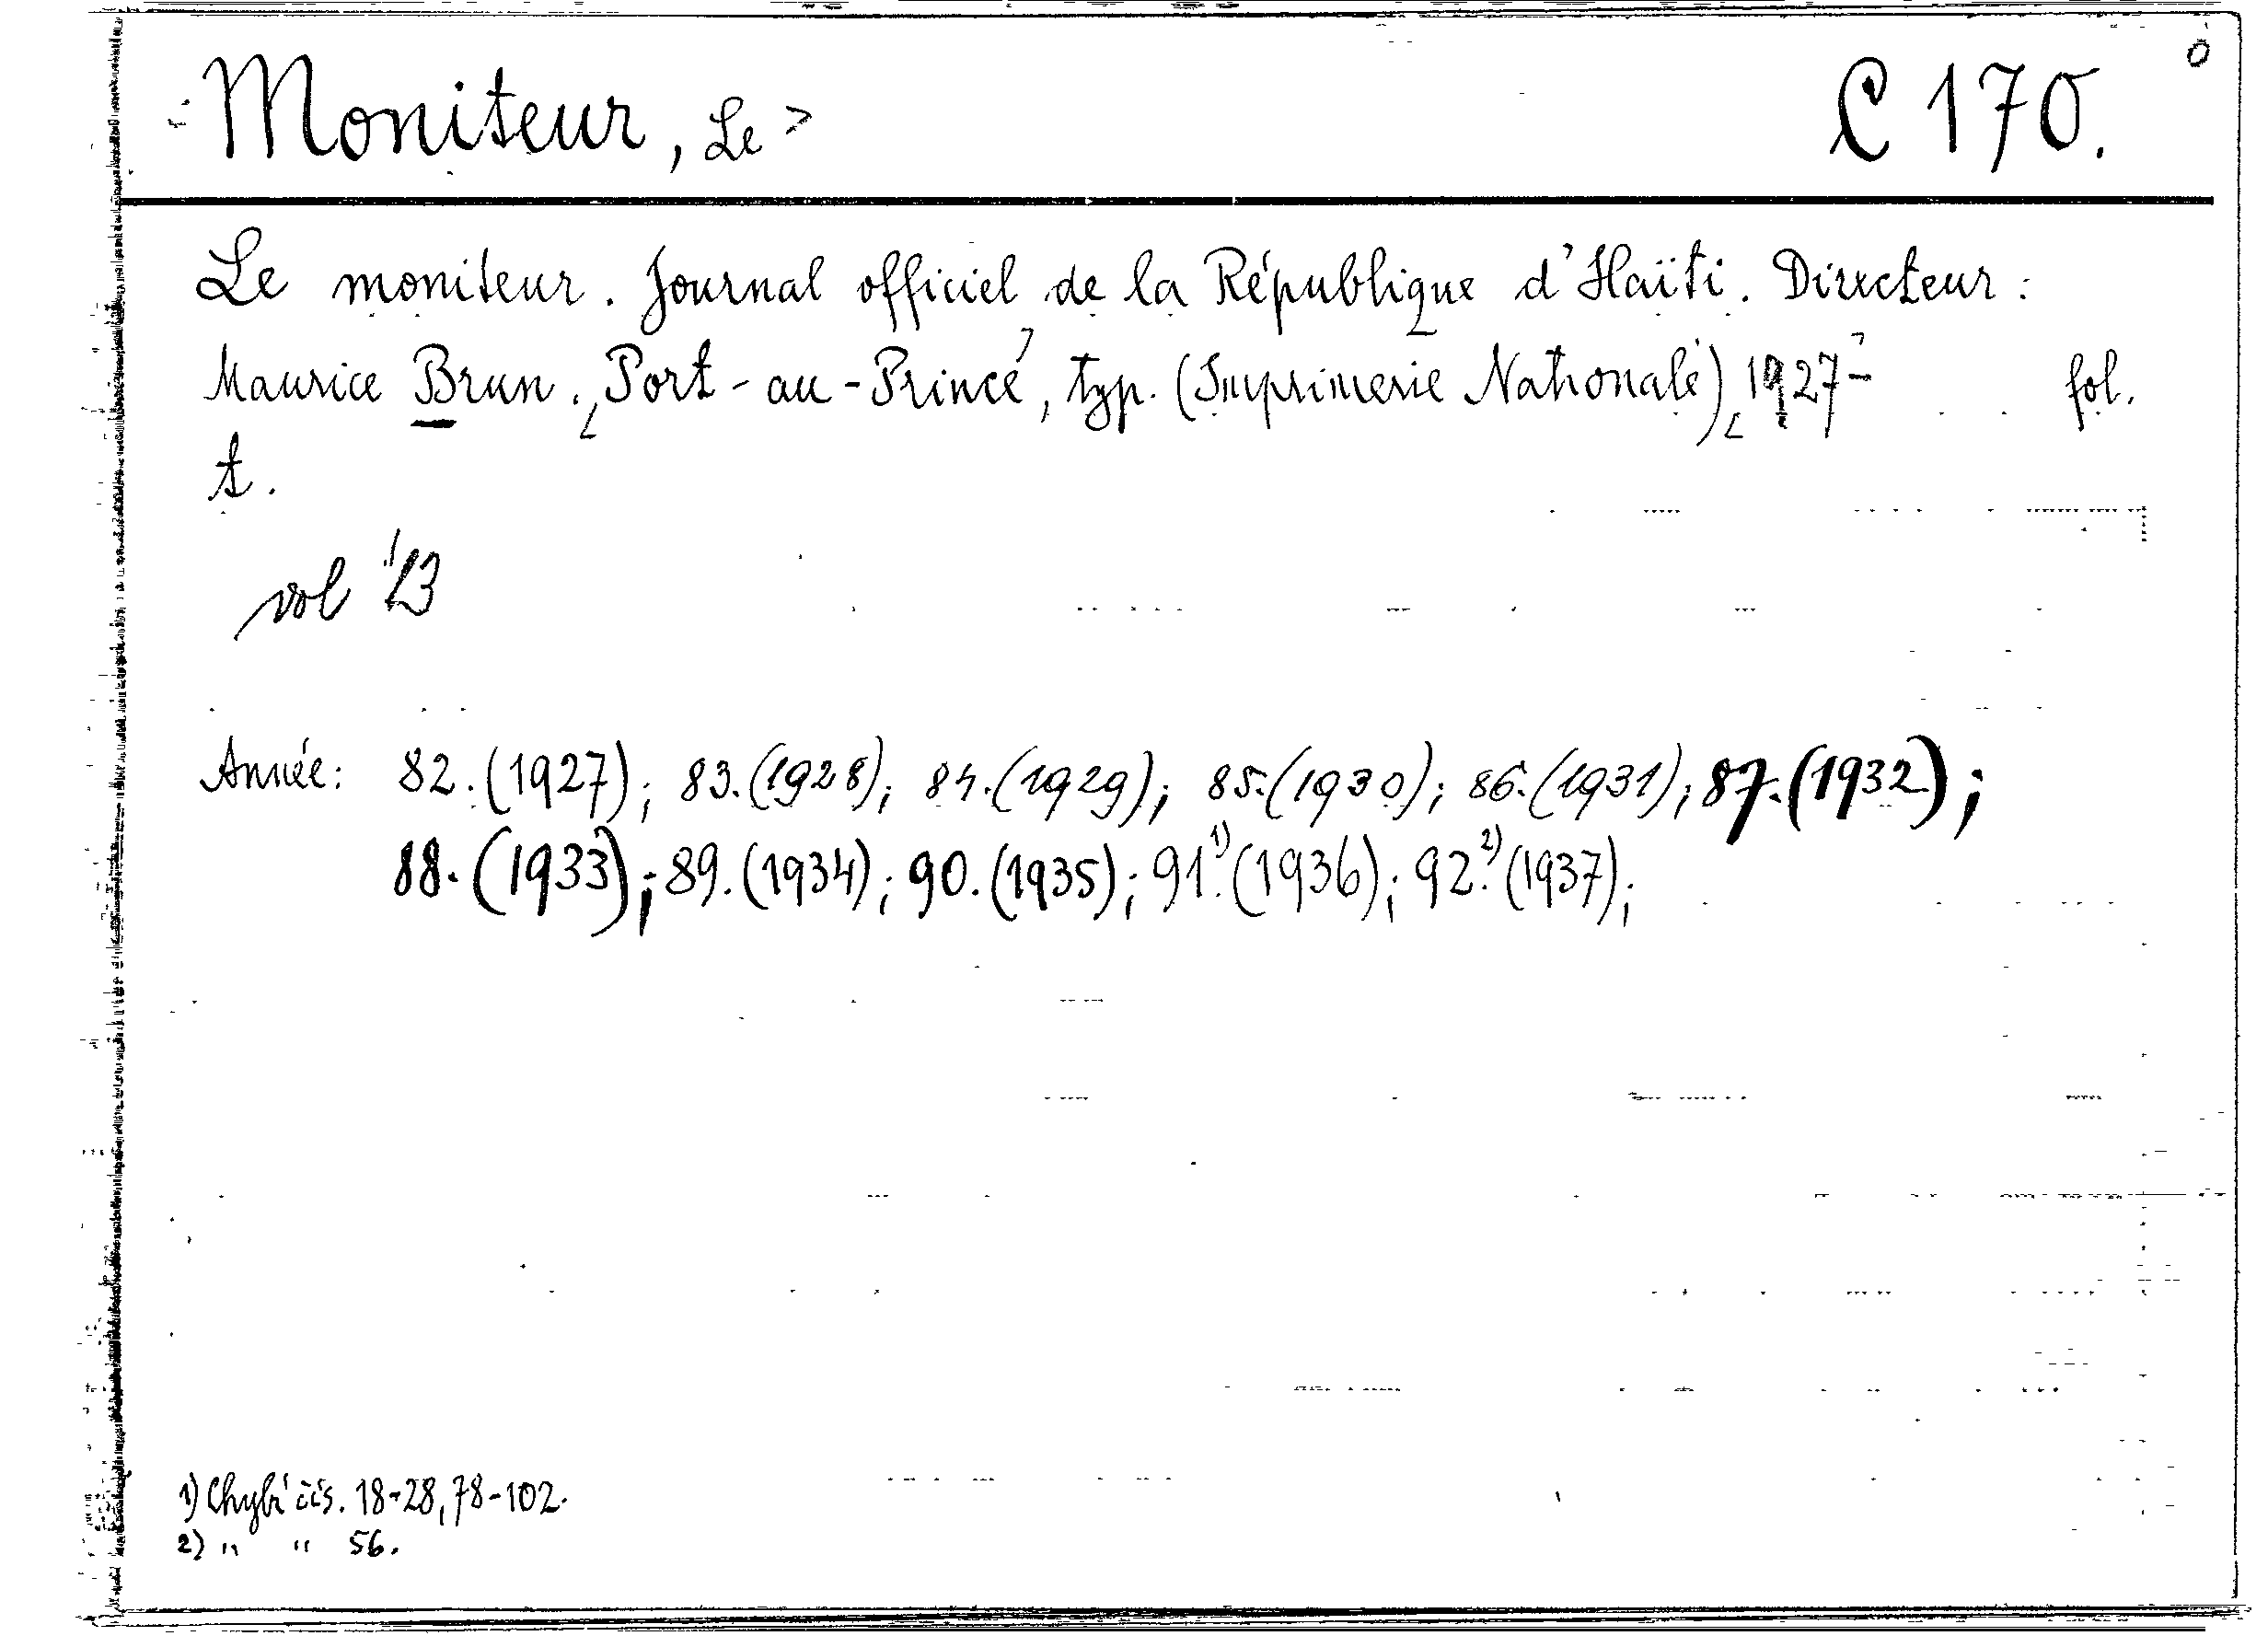 Moniteur, Le > C 170. 0
Le moniteur. Journal officiel de la République d'Haïti. Directeur:
Maurice Brun. [Port-au-Prince], typ. (Imprimerie Nationale) [1927-] fol.
t.
vol
Année: 82.(1927); 83.(1928); 84.(1929); 85.(1930); 86.(1931); 87.(1932);
88.(1933); 89.(1934); 90.(1935); 91.1)(1936); 92.2)(1937);
1) Chybí čís. 18-28, 78-102.
2) " " 56.